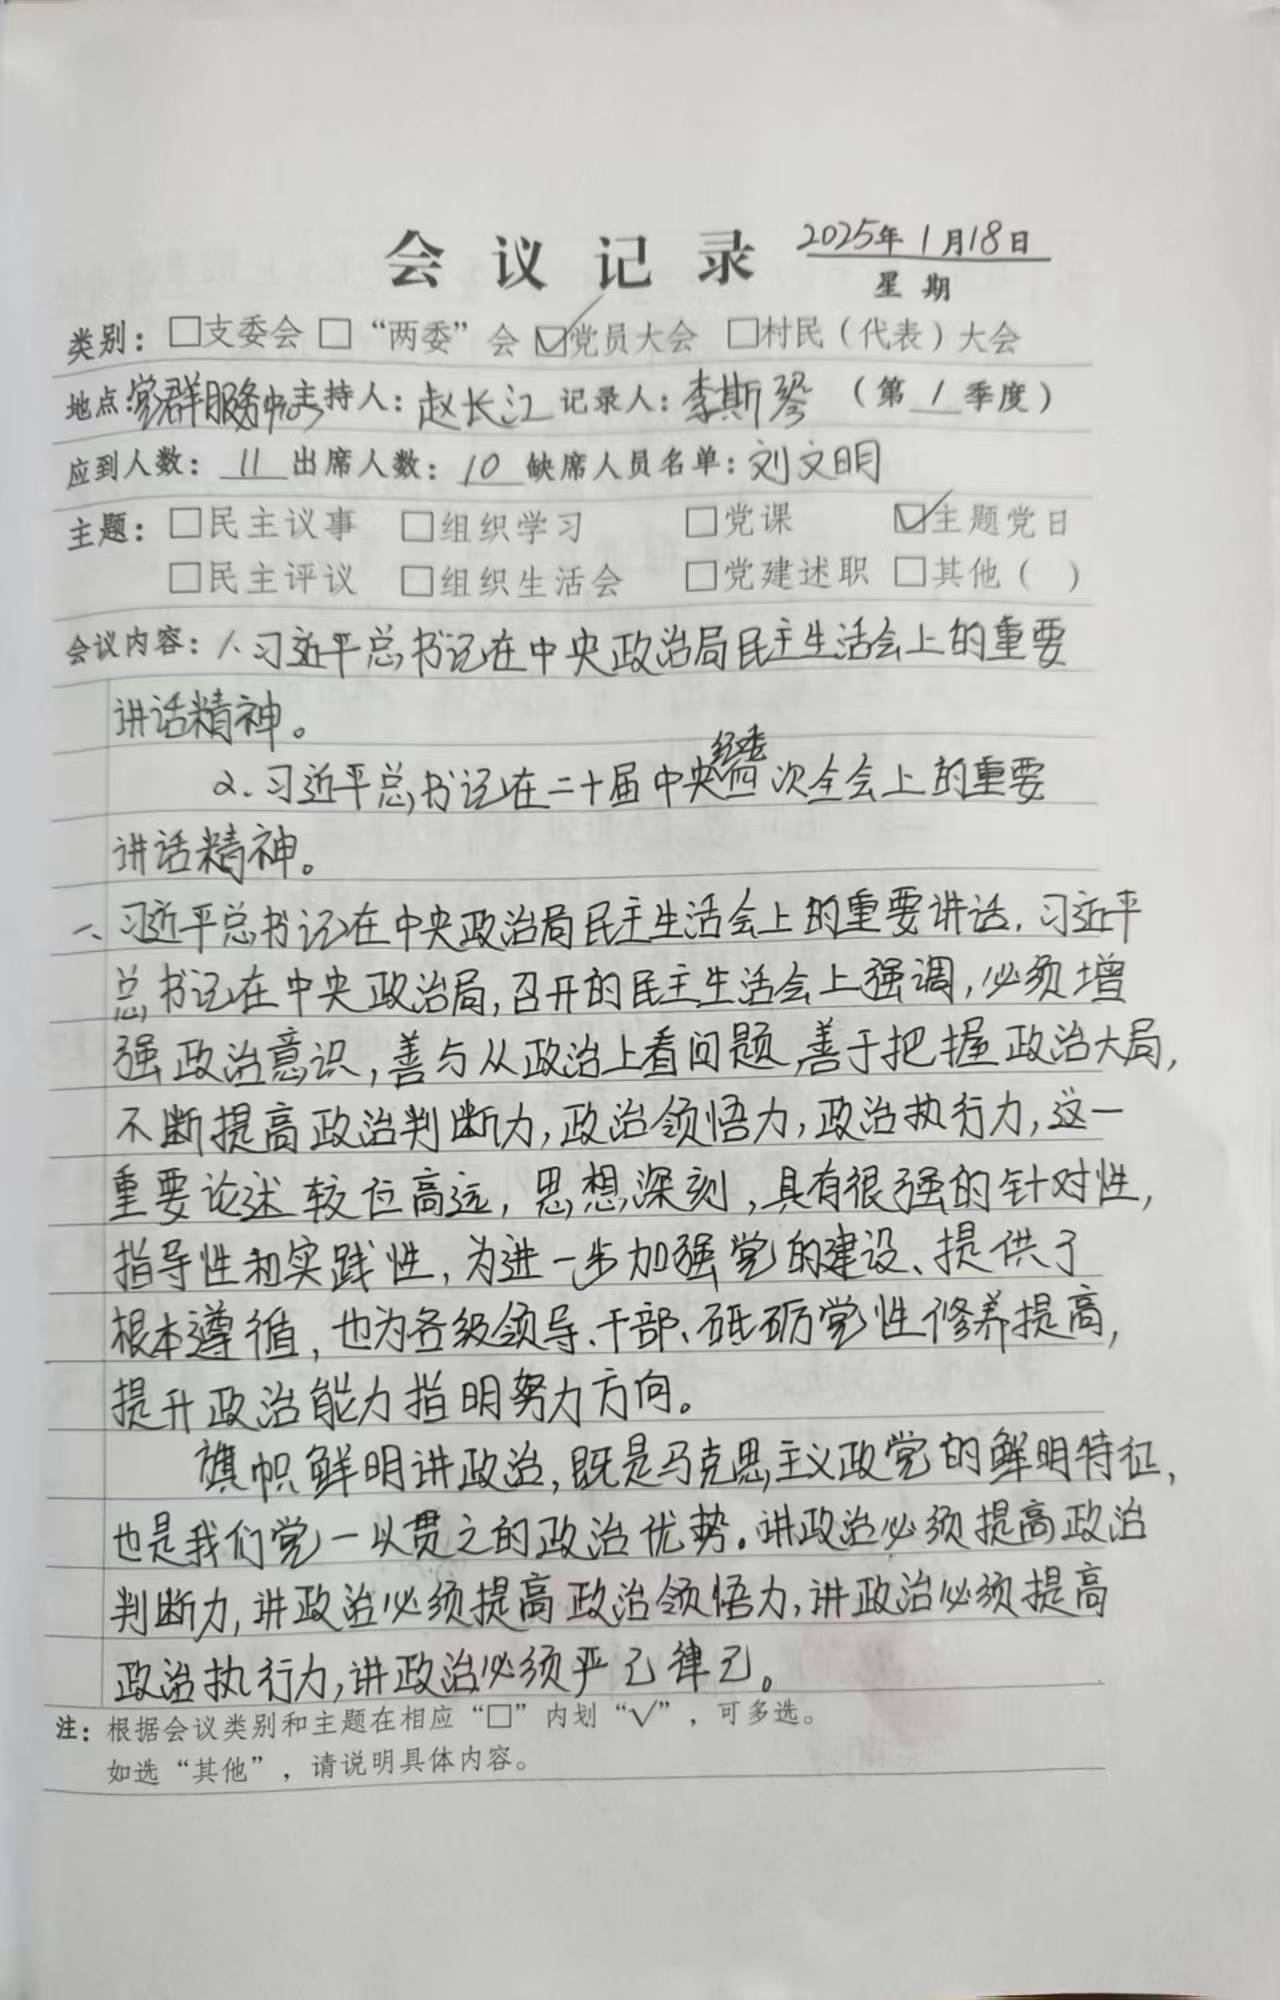 会议记录 2025年1月18日
星期
类别：□支委会 □“两委”会 ☑党员大会 □村民（代表）大会
地点：党群服务中心 主持人：赵长江 记录人：李斯琴 （第1季度）
应到人数：11 出席人数：10 缺席人员名单：刘文明
主题：□民主议事 □组织学习 □党课 ☑主题党日
□民主评议 □组织生活会 □党建述职 □其他（ ）
会议内容：1.习近平总书记在中央政治局民主生活会上的重要
讲话精神。
2.习近平总书记在二十届中央纪委四次全会上的重要
讲话精神。
一、习近平总书记在中央政治局民主生活会上的重要讲话.习近平
总书记在中央政治局,召开的民主生活会上强调,必须增
强政治意识,善与从政治上看问题,善于把握政治大局,
不断提高政治判断力,政治领悟力,政治执行力,这一
重要论述较位高远,思想深刻,具有很强的针对性,
指导性和实践性,为进一步加强党的建设、提供了
根本遵循,也为各级领导、干部、砥砺党性修养提高,
提升政治能力指明努力方向。
旗帜鲜明讲政治,既是马克思主义政党的鲜明特征,
也是我们党一以贯之的政治优势。讲政治必须提高政治
判断力,讲政治必须提高政治领悟力,讲政治必须提高
政治执行力,讲政治必须严己律己。
注：根据会议类别和主题在相应“□”内划“√”，可多选。
如选“其他”，请说明具体内容。